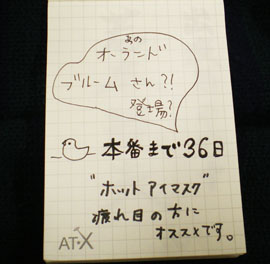 あの
オーランド
ブルーム さん?!
登場?
本番まで36日
"ホットアイマスク"
疲れ目の方に
オススメです。
AT-X